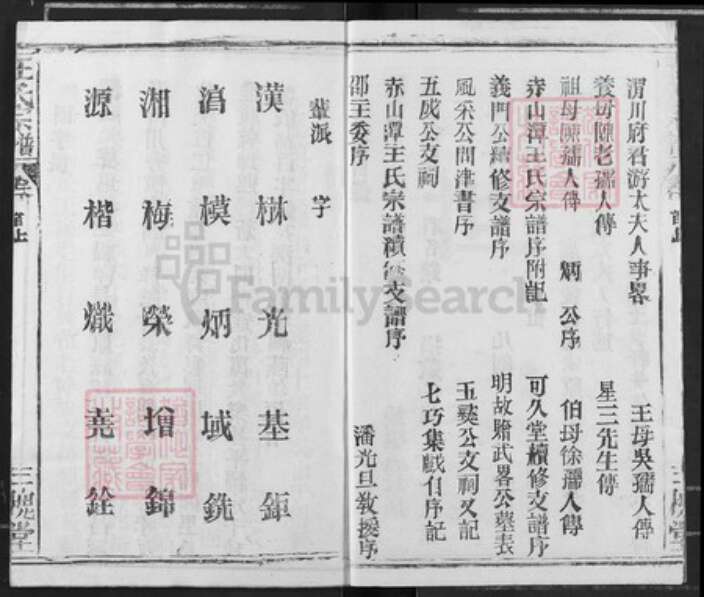 渭川府君游太夫人事畧 王母吳孺人傳
養母陳老孺人傳 星三先生傳
祖母陳孺人傳 炳公序 伯母徐孺人傳
赤山潭王氏宗譜序附記 可久堂續修支譜序
義門公續修支譜序 明故贈武畧公墓表
風采公問津書序 五奘公支祠又記
五成公支祠 七巧集戱伯序記
赤山潭王氏宗譜續修支譜序
邵主委序 潘光旦敎援序
輩派字
漢 樹 光 基 鉅
滈 模 炳 域 銑
湘 梅 榮 增 錦
源 楷 熾 堯 銓
王氏宗譜 首上 三槐堂
三槐堂
FamilySearch